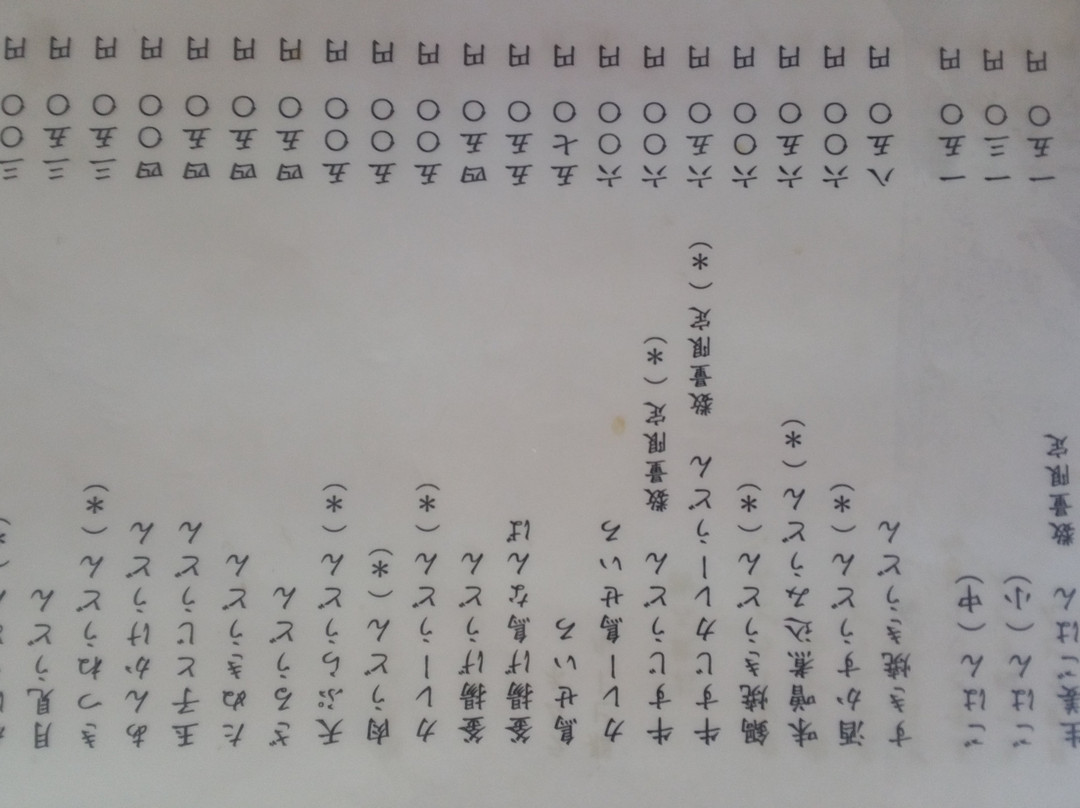 三〇〇円
月見うどん 三五〇円
きつねうどん(*) 三五〇円
あんかけうどん 四〇〇円
玉子とじうどん 四五〇円
たぬきうどん 四五〇円
ざるうどん 四五〇円
天ぷらうどん(*) 五〇〇円
肉うどん(*) 五〇〇円
カレーうどん(*) 五〇〇円
釜揚げうどん 四五〇円
釜揚げ鳥なんば 五五〇円
鳥せいろ 五七〇円
カレー鳥せいろ 六〇〇円
牛すじうどん 数量限定(*) 六〇〇円
牛すじカレーうどん 数量限定(*) 六五〇円
鍋焼きうどん(*) 六〇〇円
味噌煮込みうどん(*) 六五〇円
酒かすうどん(*) 六〇〇円
すき焼きうどん 八五〇円
ごはん(中) 一五〇円
ごはん(小) 一三〇円
生姜ごはん 数量限定 一五〇円